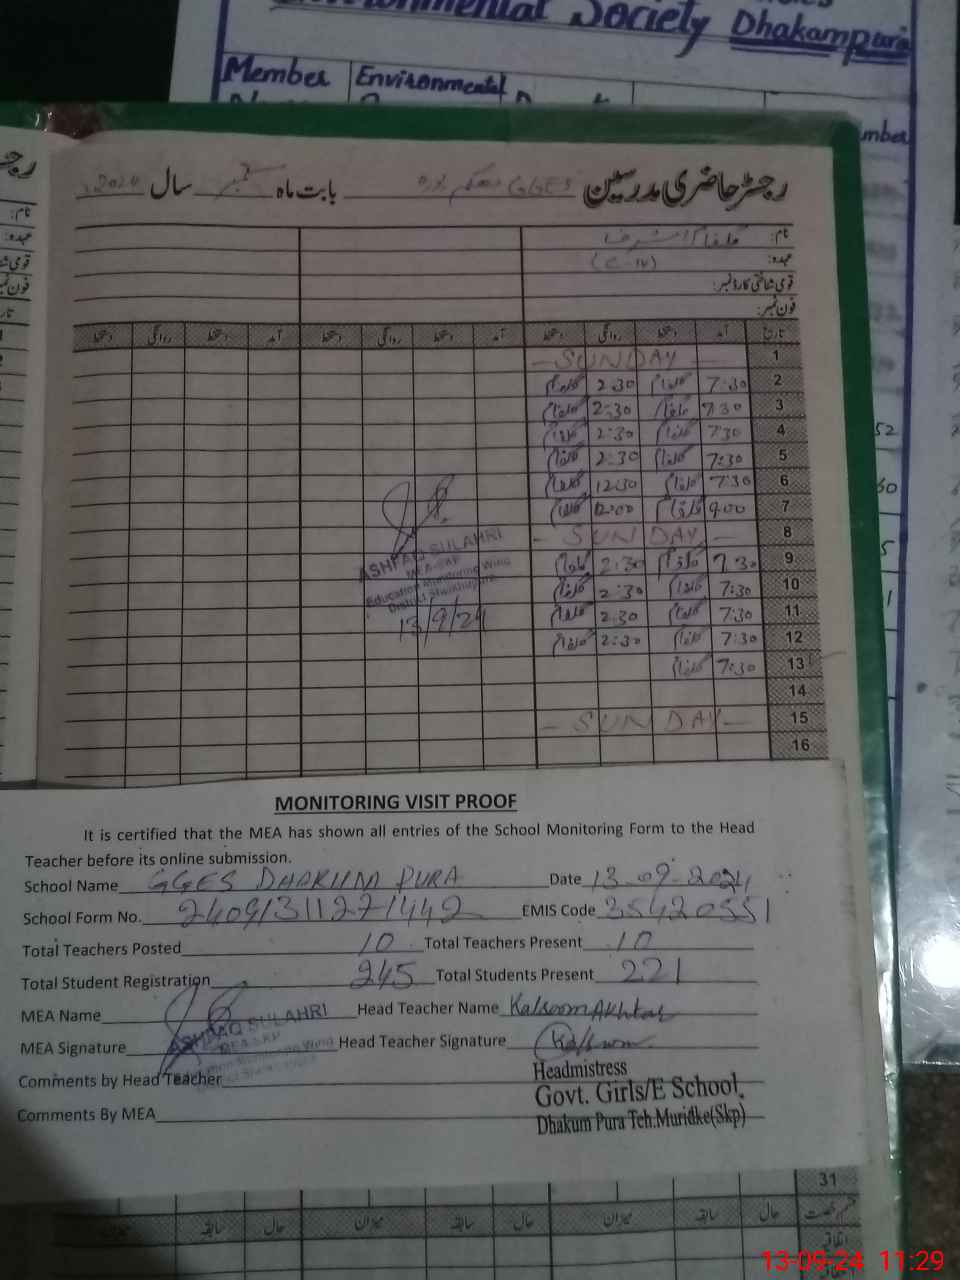 Environmental Society Dhakampura
Member Environmental
mber
رجسٹر حاضری مدرسین GGES بابت ماہ ستمبر سال
نام:
عہدہ: (C-IV)
قومی شناختی کارڈ نمبر:
فون نمبر:
تاریخ آمد دستخط روانگی دستخط آمد دستخط روانگی دستخط
1 - SUNDAY -
2 7:30 گلفام 2:30 گلفام
3 7:30 گلفام 2:30 گلفام
4 7:30 گلفام 2:30 گلفام
5 7:30 گلفام 2:30 گلفام
6 7:30 گلفام 12:30 گلفام
7 9:00 گلفام 12:00 گلفام
8 - SUNDAY -
9 7:30 گلفام 2:30 گلفام
10 7:30 گلفام 2:30 گلفام
11 7:30 گلفام 2:30 گلفام
12 7:30 گلفام 2:30 گلفام
13 7:30 گلفام
14
15 - SUNDAY -
16
ASHFAQ SULAHRI
MEA-SKP
Education Monitoring Wing
District Sheikhupura
13/9/24
MONITORING VISIT PROOF
It is certified that the MEA has shown all entries of the School Monitoring Form to the Head
Teacher before its online submission.
School Name GGES DHAKUM PURA Date 13-09-2024
School Form No. 24091311271442 EMIS Code 35420551
Total Teachers Posted 10 Total Teachers Present 10
Total Student Registration 245 Total Students Present 221
MEA Name ASHFAQ SULAHRI Head Teacher Name Kalsoom Akhtar
MEA Signature MEA-SKP Head Teacher Signature Kalsoom
Comments by Head Teacher Headmistress
Govt. Girls/E School,
Comments By MEA Dhakum Pura Teh.Muridke(Skp)
31
حال سابقہ میزان حال سابقہ میزان حال سابقہ میزان
13-09-24 11:29